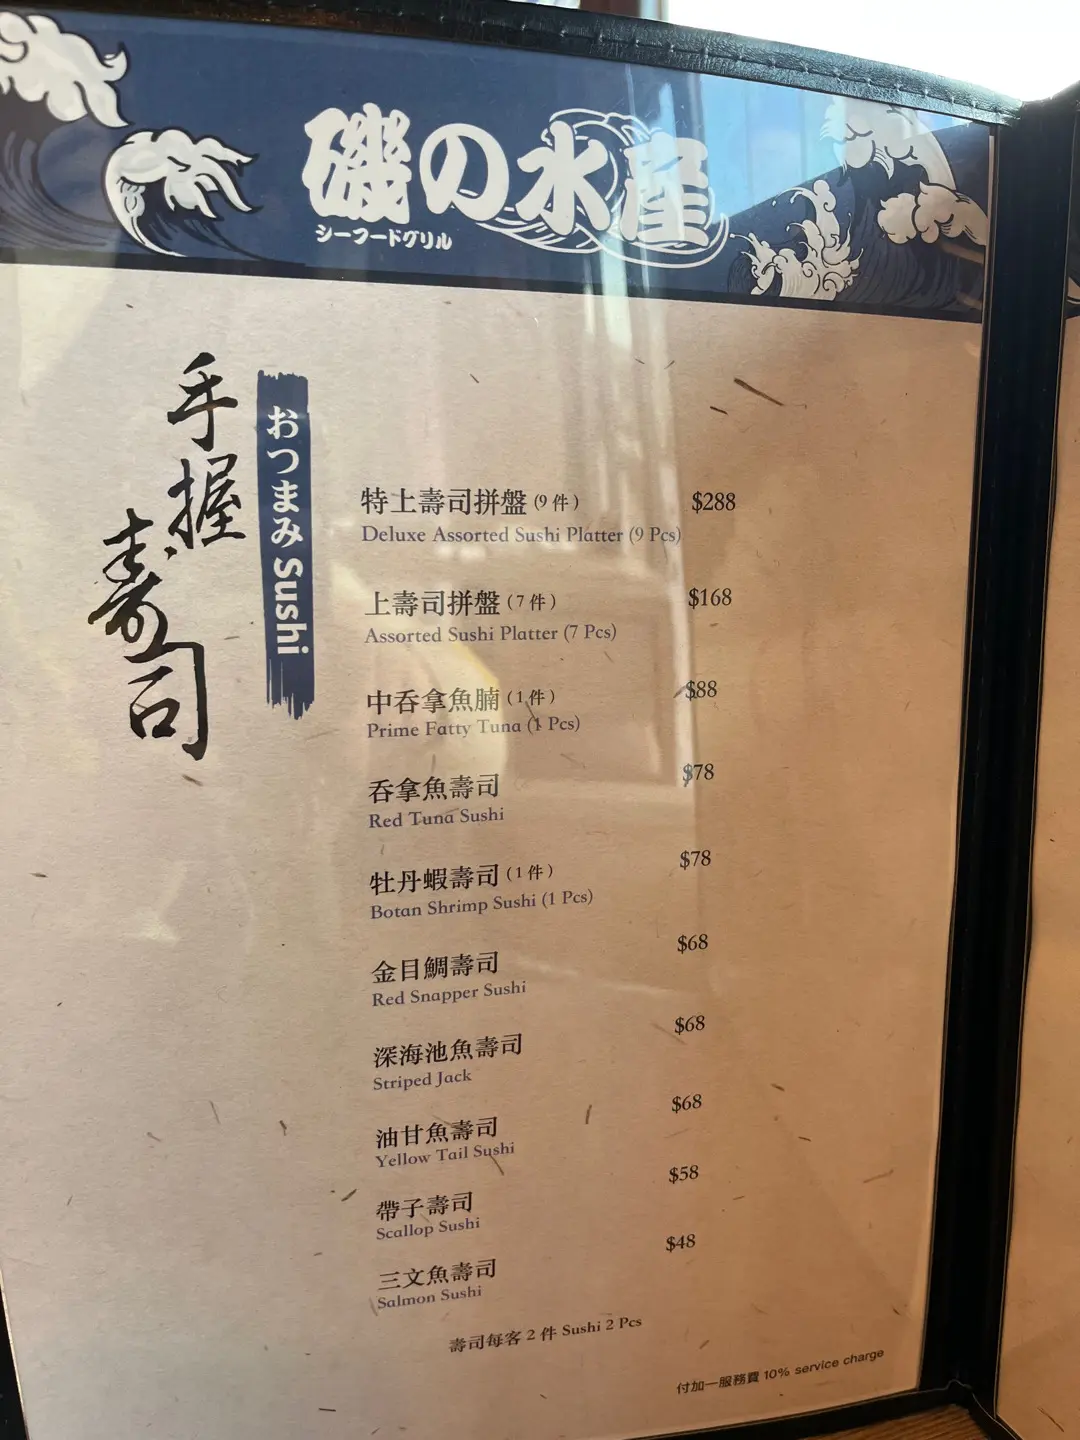 磯の水産
シーフードグリル
手握壽司
おつまみ Sushi
特上壽司拼盤 (9 件) $288
Deluxe Assorted Sushi Platter (9 Pcs)
上壽司拼盤 (7 件) $168
Assorted Sushi Platter (7 Pcs)
中吞拿魚腩 (1 件) $88
Prime Fatty Tuna (1 Pcs)
吞拿魚壽司 $78
Red Tuna Sushi
牡丹蝦壽司 (1 件) $78
Botan Shrimp Sushi (1 Pcs)
金目鯛壽司 $68
Red Snapper Sushi
深海池魚壽司 $68
Striped Jack
油甘魚壽司 $68
Yellow Tail Sushi
帶子壽司 $58
Scallop Sushi
三文魚壽司 $48
Salmon Sushi
壽司每客 2 件 Sushi 2 Pcs
付加一服務費 10% service charge